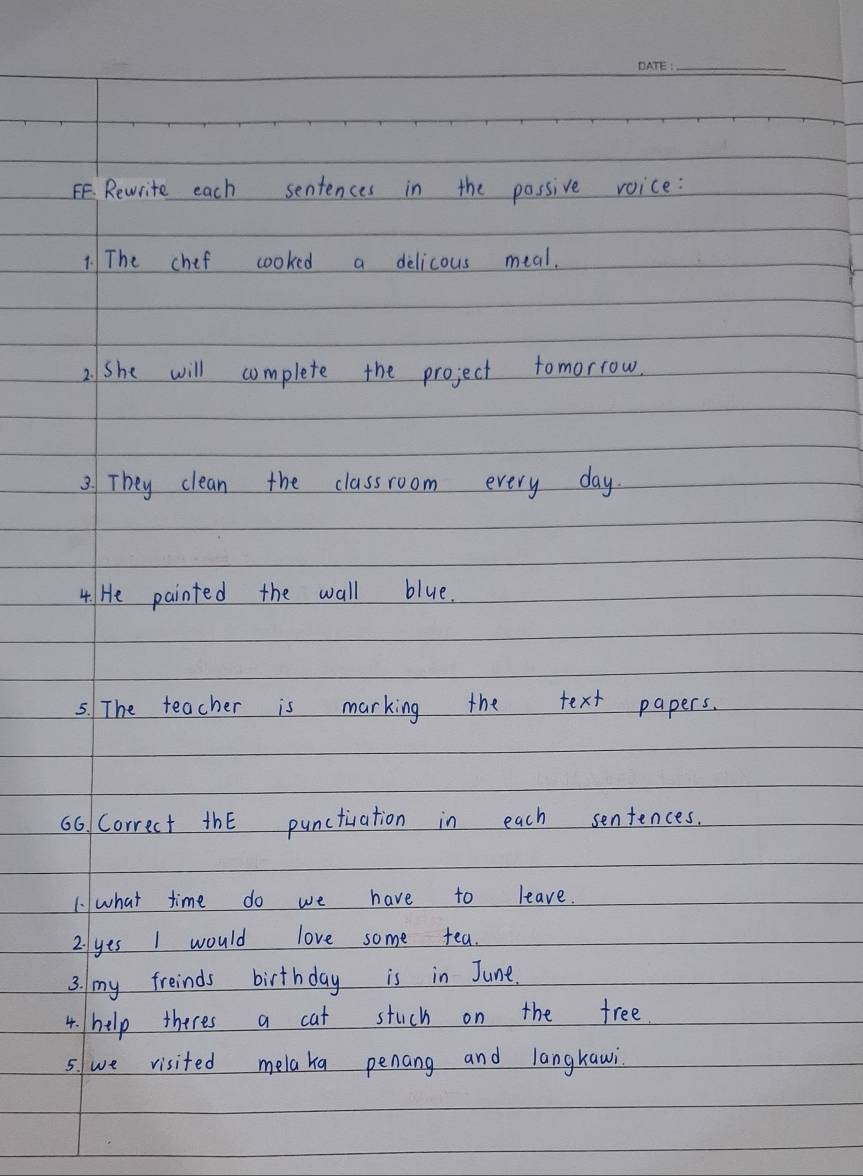 DATE :
FF. Rewrite each sentences in the passive voice:
1. The chef cooked a delicous meal.
2. She will complete the project tomorrow.
3. They clean the classroom every day.
4. He painted the wall blue.
5. The teacher is marking the text papers.
GG. Correct thE punctuation in each sentences.
1. what time do we have to leave.
2. yes I would love some tea.
3. my freinds birthday is in June.
4. help theres a cat stuch on the tree.
5. we visited melaka penang and langkawi.